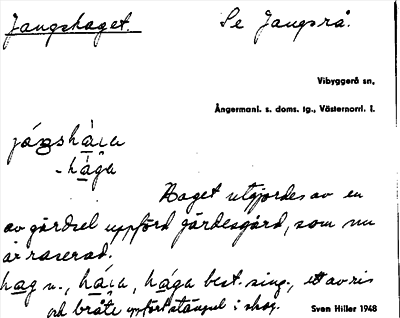 Jangshaget. Se Jangsrå.
Vibyggerå sn,
Ångermanl. s. doms. tg., Västernorrl. l.
jáŋshàɩa
-hága
Haget utgjordes av en
av gärdsel uppförd gärdesgård, som nu
är raserad.
hag n., háɩa, hága best. sing., ett av ris
och bråte uppfört stängsel i skog.
Sven Hiller 1948